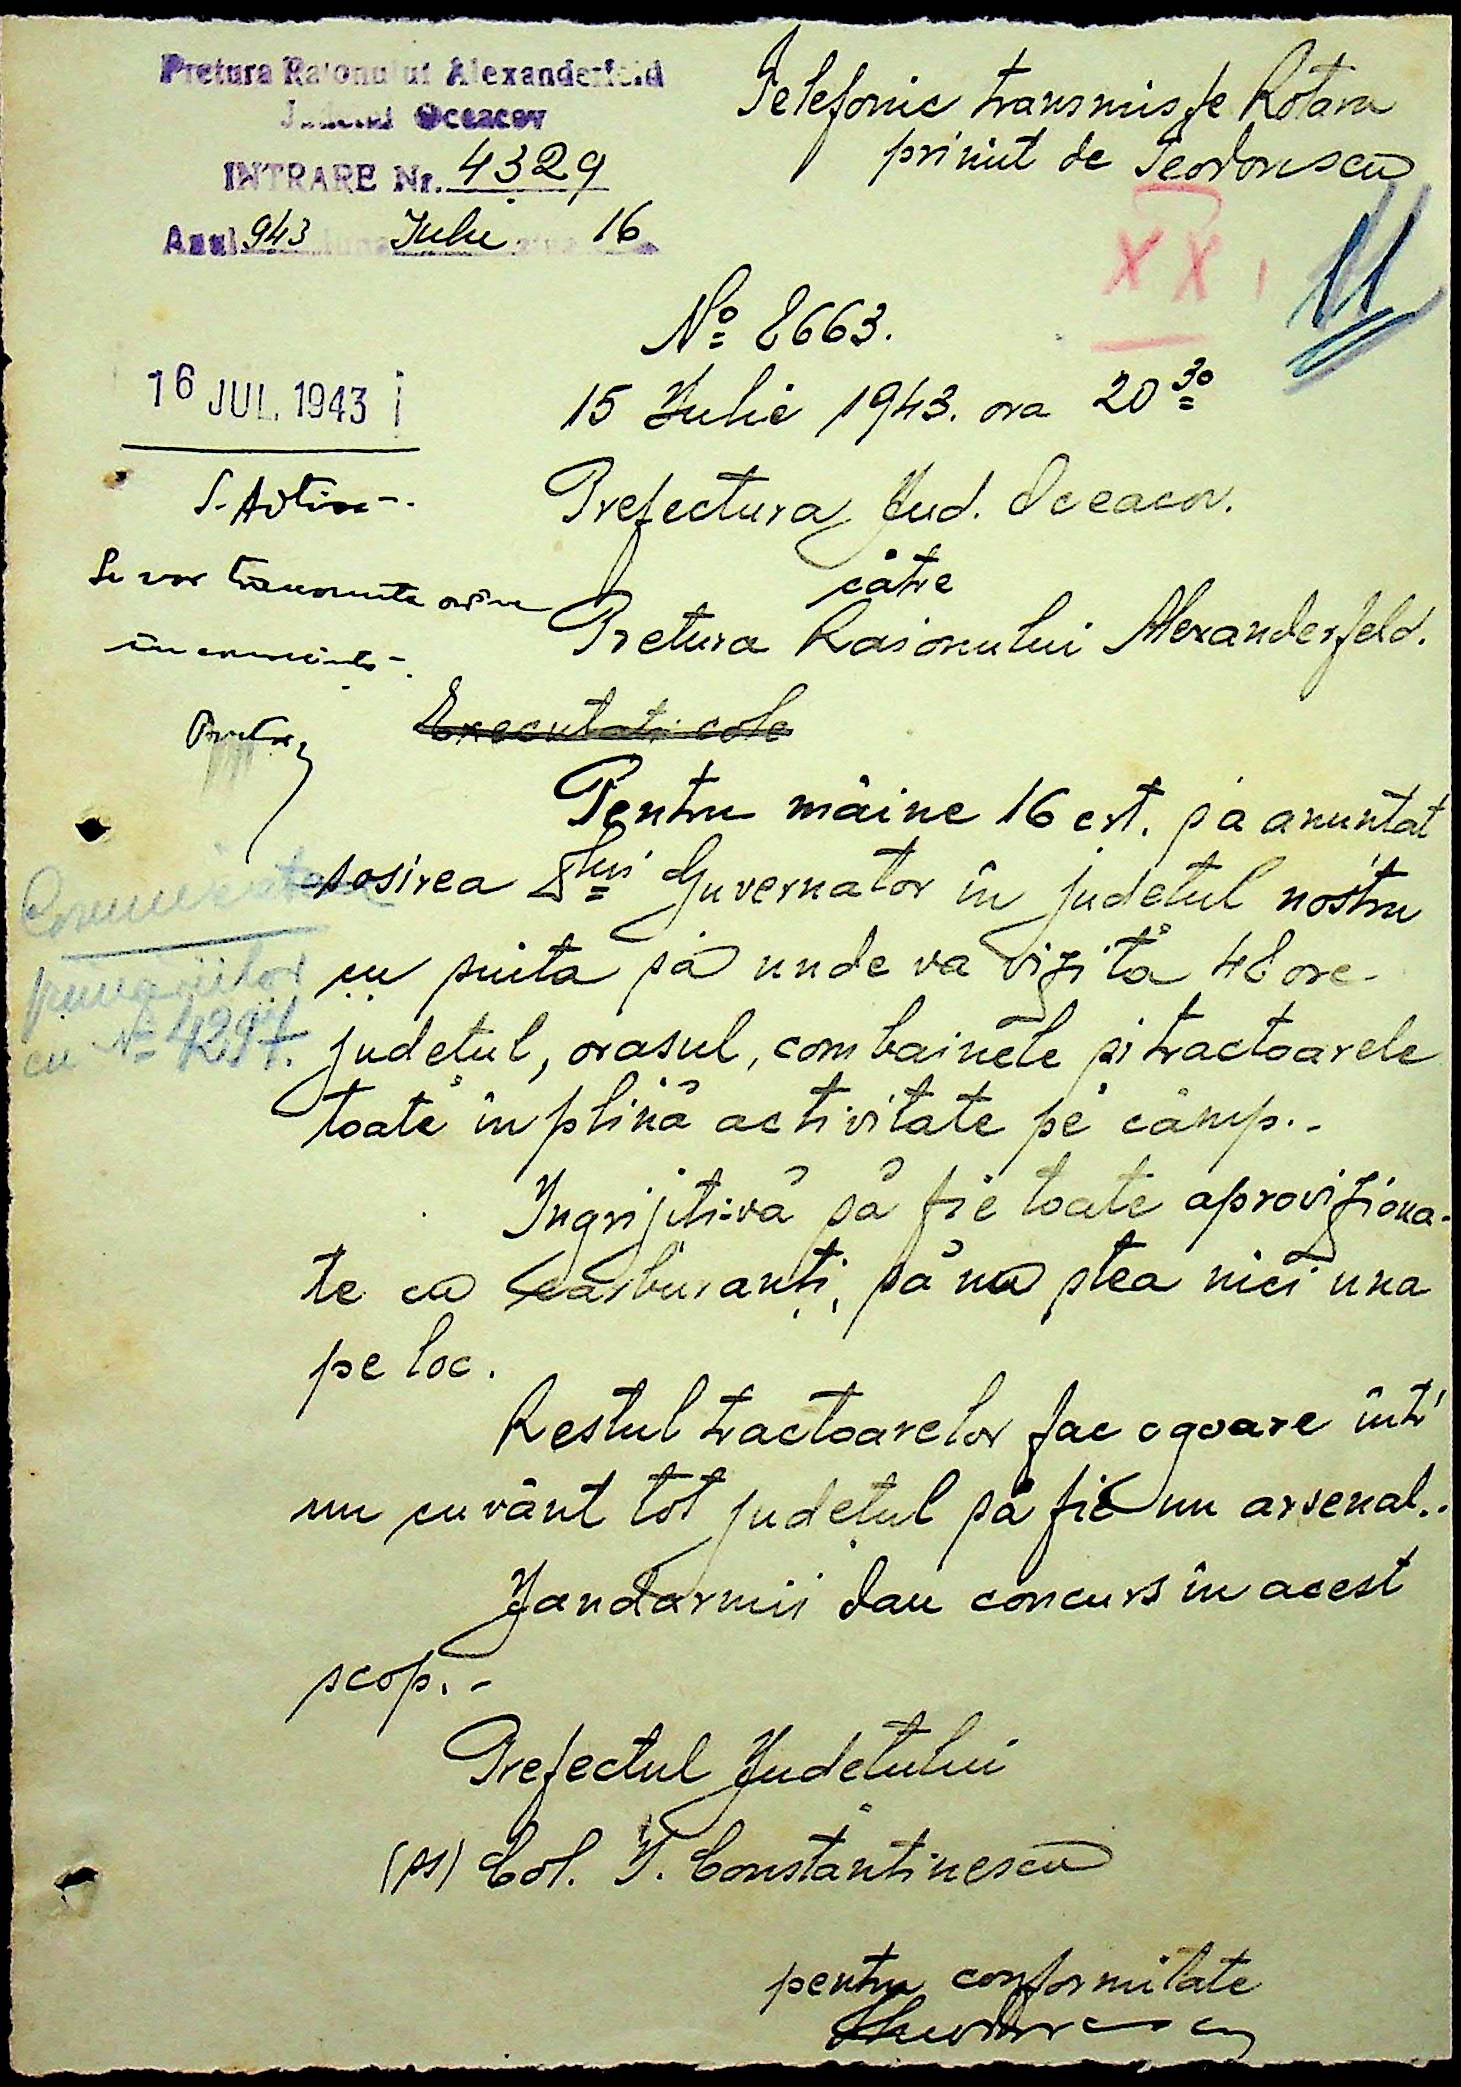 Pretura Raionului Alexanderfeld
Judetul Oceacov
INTRARE Nr. 4329
Anul 943 luna Iulie ziua 16
Telefonic transmis de Rotaru
primit de Teodorescu
XX
11
No 8663.
16 JUL. 1943
15 Iulie 1943. ora 20 30
Prefectura Jud. Oceacov.
către
Pretura Raionului Alexanderfeld.
Se vor transmite
Executati cele
Pentru mâine 16 crt. s'a anuntat
sosirea Dlui Guvernator în judetul nostru
cu suita sa unde va vizită 48 ore
judetul, orasul, combainele si tractoarele
toate în plină activitate pe câmp.-
Comunicata
primariilor
cu No 4297.
Ingrijiti-vă să fie toate aproviziona-
te cu carburanți, să nu stea nici una
pe loc.
Restul tractoarelor fac ogoare într'
un cuvânt tot județul să fie un arsenal..
Jandarmii dau concurs în acest
scop.-
Prefectul Judetului
(ss) Col. I. Constantinescu
pentru conformitate